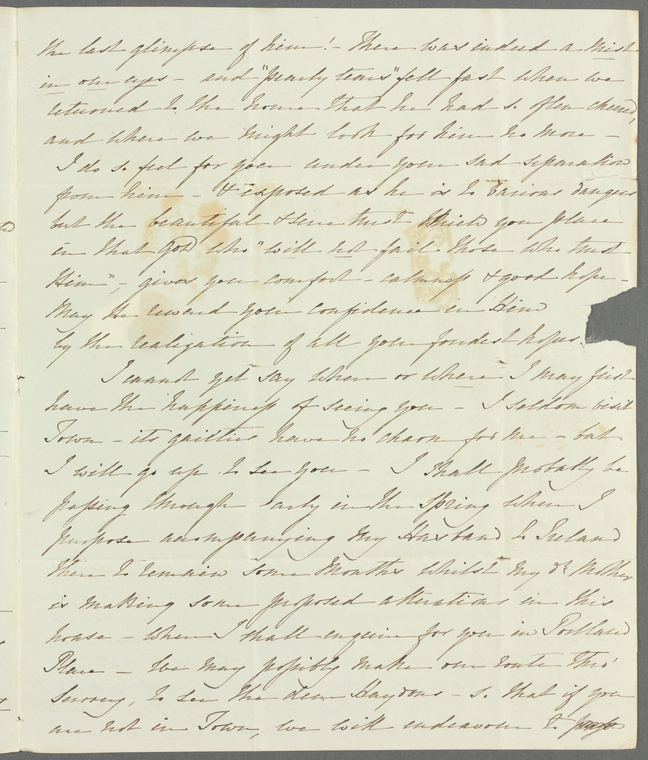 the last glimpse of him! - There was indeed a mist
in our eyes - and "pearly tears" fell fast when we
returned to the home that he had so often cheered,
and where we might look for him no more -
I do so feel for you under your sad separation
from him - & exposed as he is to various dangers
but the beautiful & sure trust which you place
in that God who "will not fail those who trust
Him" - gives you comfort - calmness & good hope -
May He reward your confidence in Him
by the realization of all your fondest hopes.
I cannot yet say when or where I may first
have the happiness of seeing you - I seldom visit
Town - its gaities have no charm for me - but
I will go up to see you - I shall probably be
passing through early in the Spring when I
purpose accompanying my Husband to Ireland
there to remain some months whilst my dr Mother
is making some proposed alterations in this
house - when I shall enquire for you in Portland
Place - We may possibly make our route thro'
Surrey, to see the dear Haydons - so that if you
are not in Town, we will endeavour to